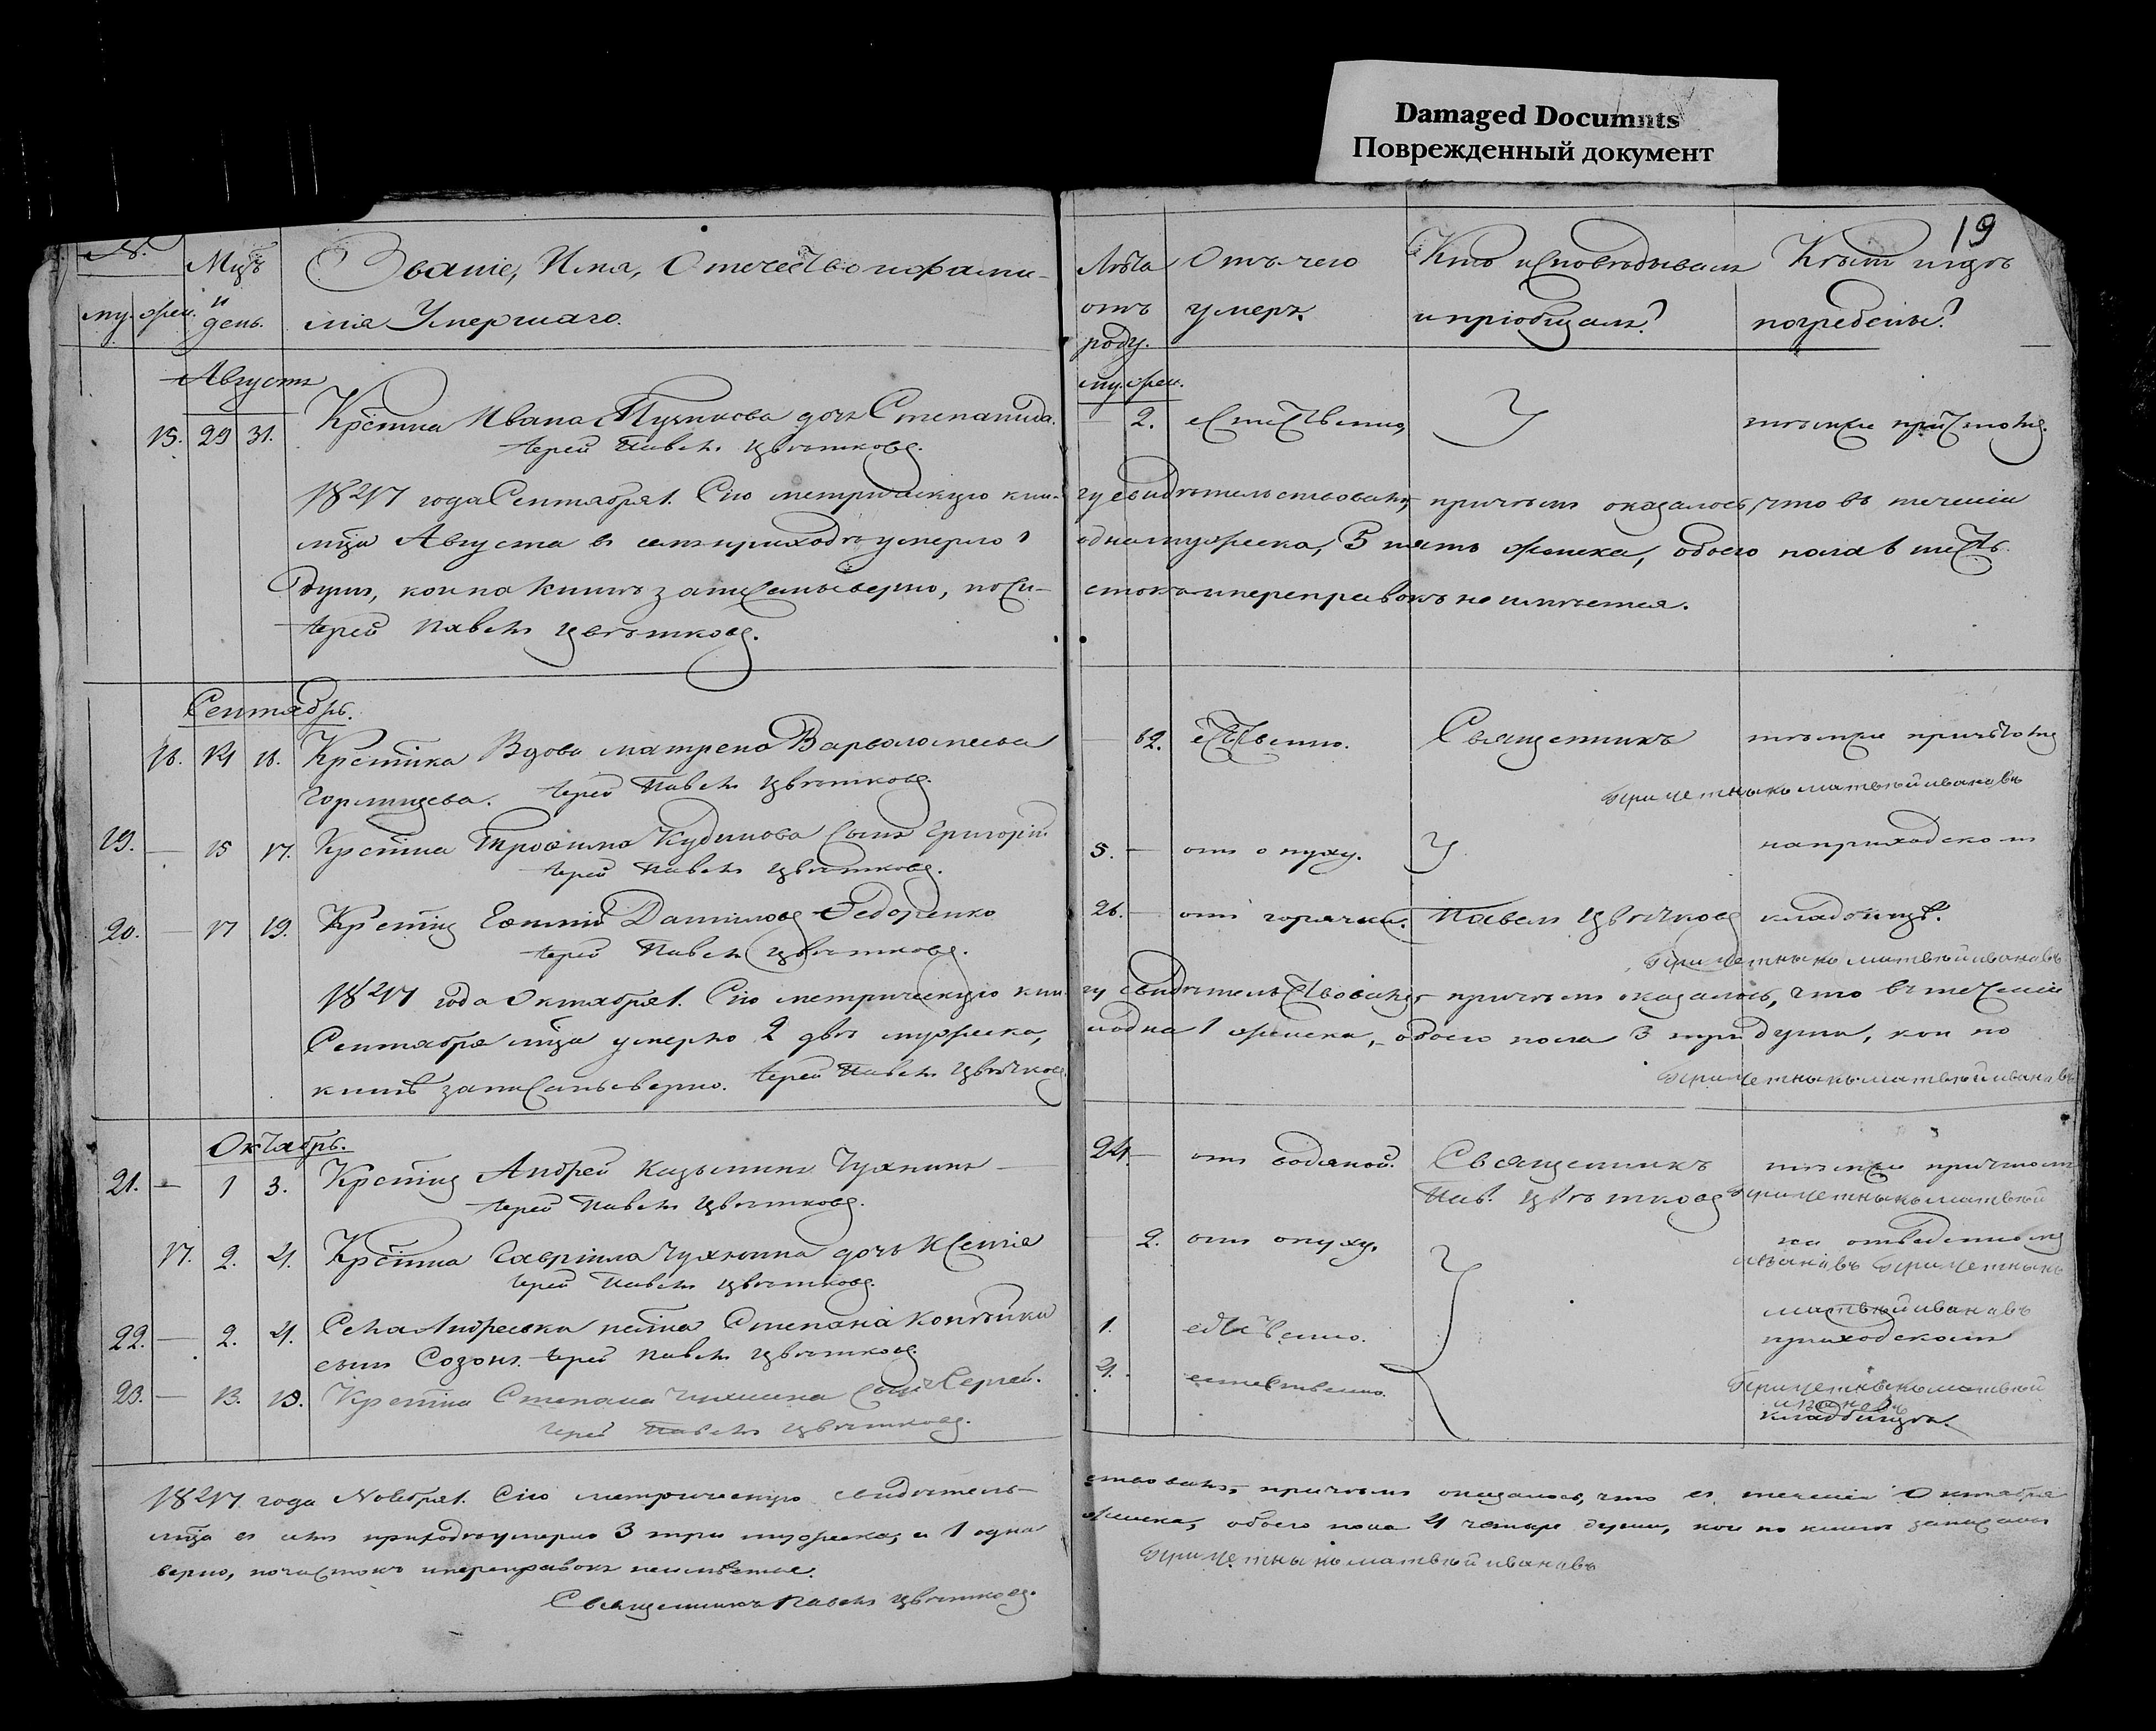 Damaged Documnts
Поврежденный документ
19
№.
му. жен.
Мцъ
и
день.
Званіе, Имя, Отечество и фами-
лія Умершаго.
Лѣта
отъ
роду.
му. жен.
Отъ чего
умеръ.
Кто исповѣдывалъ
и пріобщалъ?
Кѣмъ и гдѣ
погребены?
Августъ
15. 29 31. Крестьянина Ивана дочь Степанида.
Іерей Павелъ Цвѣтковъ.
2. естественно,
1847 года Сентября 1. Сію метрическую кни-
гу свидѣтельствовалъ, причемъ оказалось, что въ теченіи
мца Августа въ семъ приходѣ умерло 1
одна мужеска, 5 пять женска, обоего пола 6 шесть
душъ, кои по книгѣ записаны вѣрно, поси-
стокъ и переправокъ не имѣется.
Іерей Павелъ Цвѣтковъ.
Сентябрь.
16. 14 16. Вдова Матрена Варволомеева
Іерей Павелъ Цвѣтковъ.
62. Священникъ
Причетныкъ Матвѣй Ивановъ
19. — 15 17. Трофима Кудинова сынъ Григорій.
Іерей Павелъ Цвѣтковъ.
5. — отъ опуху.
на приходскомъ
20. — 17 19. Евтихій Даниловъ Федоренко
Іерей Павелъ Цвѣтковъ.
26. — отъ горячки. Павелъ Цвѣтковъ кладбищѣ.
Причетныкъ Матвѣй Ивановъ
1847 года Октября 1. Сію метрическую кни-
гу свидѣтельствовалъ, причемъ оказалось, что въ теченіи
Сентября мца умерло 2 два мужеска,
и одна 1 женска, обоего пола 3 три души, кои по
книгѣ записаны вѣрно. Іерей Павелъ Цвѣтковъ.
Причетныкъ Матвѣй Ивановъ
Октябрь.
21. — 1 3. Андрей Казьминъ Чухнинъ —
Іерей Павелъ Цвѣтковъ.
24. — отъ водяной. Священникъ
Пав. Цвѣтковъ
Причетныкъ Матвѣй
17. 2. 4. Гавріила Чухнина дочь Ксенія
Іерей Павелъ Цвѣтковъ.
2. отъ опуху.
на отведенномъ
Ивановъ Причетныкъ
22. — 2. 4. Села Андреевки Степана Копѣйки
сынъ Созонъ. Іерей Павелъ Цвѣтковъ.
1.
Матвѣй Ивановъ
приходскомъ
23. — 13. 15. Степана Чухнина сынъ Сергей.
Іерей Павелъ Цвѣтковъ.
4. естественно.
Причетныкъ Матвѣй
Ивановъ
кладбищѣ.
1847 года Ноября 1. Сію метрическую свидѣтель-
ствовалъ, причемъ оказалось, что въ теченіи Октября
мца въ семъ приходѣ умерло 3 три мужеска, и 1 одна
женска, обоего пола 4 четыре души, кои по книгѣ записаны
вѣрно, почистокъ и переправокъ неимѣется.
Причетныкъ Матвѣй Ивановъ
Священникъ Павелъ Цвѣтковъ.